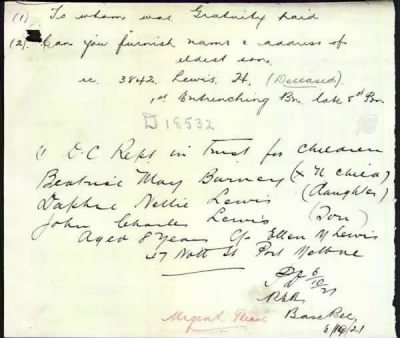 (1) To whom was Gratuity paid
(2) Can you furnish name & address of
eldest son.
re. 3842. Lewis. H. (Deceased).
1st Entrenching Bn. late 8th Bn
D 18532
(1 O.C Reps. in Trust for Children
Beatrice May Burney (X N child)
Daphne Nellie Lewis (daughter)
John Charles Lewis (Son)
Aged 8 Years C/o Ellen M Lewis
57 Nott St Port Melbne
Urgent Please
Base Rec